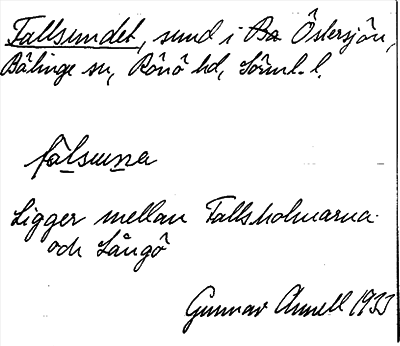 Tallsundet, sund i Östersjön,
Bälinge sn, Rönö hd, Sörml. l.
fälsuna
Ligger mellan Tallsholmarna
och Långö
Gunnar Annell 1933